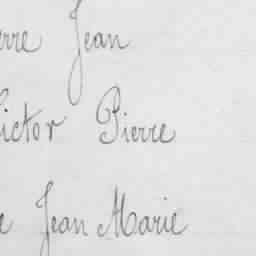 erre Jean
Victor Pierre
e Jean Marie